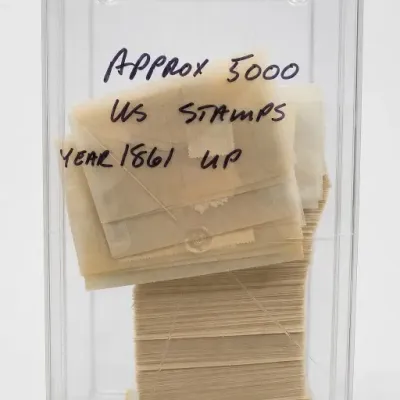 APPROX 5000
US STAMPS
YEAR 1861 UP